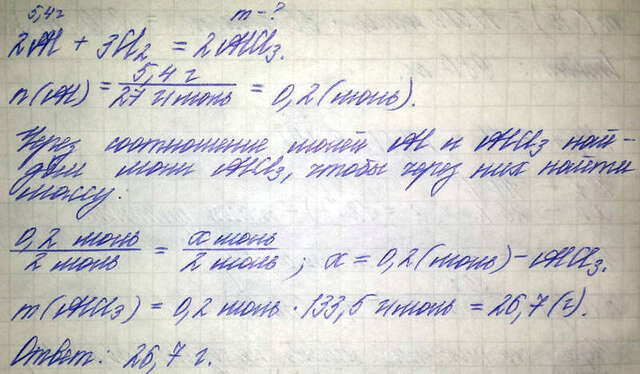 5,4 г m - ?
2Al + 3Cl₂ = 2AlCl₃.
n(Al) = 5,4 г / 27 г/моль = 0,2 (моль).
Через соотношение молей Al и AlCl₃ най-
дём моли AlCl₃, чтобы через них найти
массу.
0,2 моль / 2 моль = x моль / 2 моль ; x = 0,2 (моль) - AlCl₃.
m(AlCl₃) = 0,2 моль · 133,5 г/моль = 26,7 (г).
Ответ: 26,7 г.